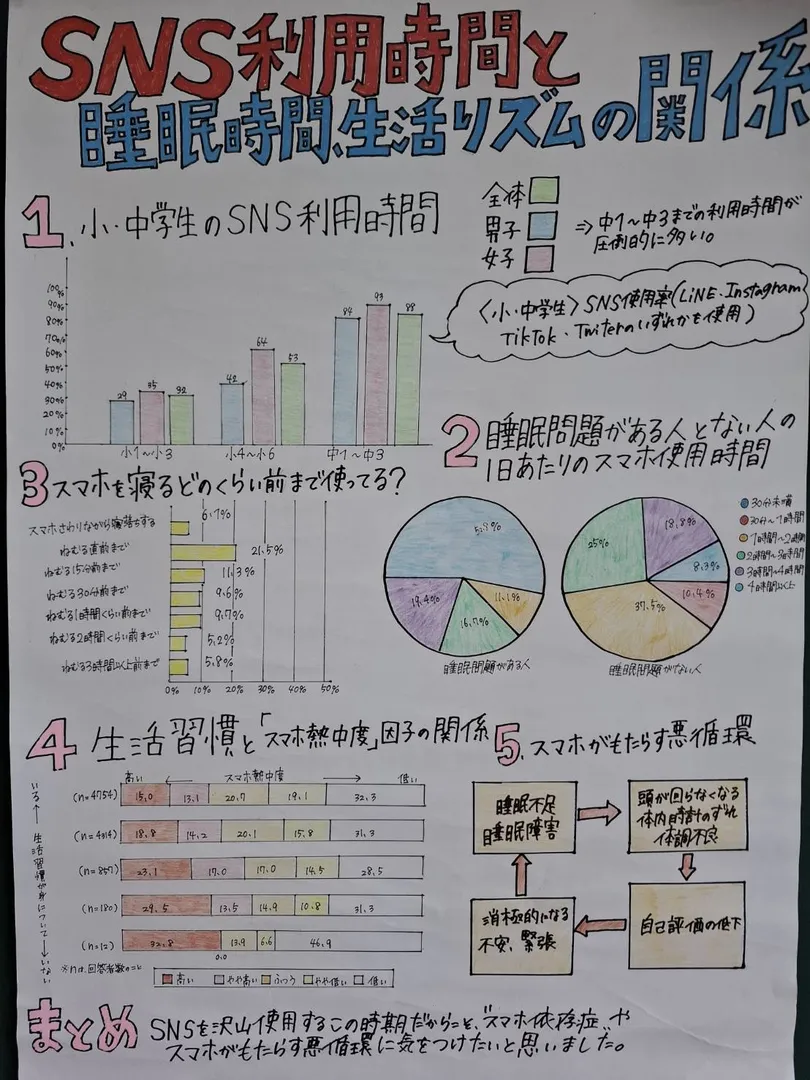 SNS利用時間と
睡眠時間、生活リズムの関係
1、小・中学生のSNS利用時間
全体
男子
女子
⇒中1〜中3までの利用時間が
圧倒的に多い。
〈小・中学生〉SNS使用率(LiNE、Instagram
TikTok、Twiterのいずれかを使用)
100%
90%
80%
70%
60%
50%
40%
30%
20%
10%
0%
29 35 32
42 64 53
84 93 88
小1〜小3 小4〜小6 中1〜中3
2 睡眠問題がある人とない人の
1日あたりのスマホ使用時間
30分未満
30分〜1時間
1時間〜2時間
2時間〜3時間
3時間〜4時間
4時間以上
19.4% 16.7% 11.1%
睡眠問題がある人
25% 18.8% 8.3% 10.4% 37.5%
睡眠問題がない人
3 スマホを寝るどのくらい前まで使ってる?
スマホさわりながら寝落ちする 6.7%
ねむる直前まで 21.5%
ねむる15分前まで 11.3%
ねむる30分前まで 9.6%
ねむる1時間くらい前まで 9.7%
ねむる2時間くらい前まで 5.2%
ねむる3時間以上前まで 5.8%
0% 10% 20% 30% 40% 50%
4 生活習慣と「スマホ熱中度」因子の関係
高い ← スマホ熱中度 → 低い
いる← 生活習慣が身について →いない
(n=4754) 15.0 13.1 20.7 19.1 32.3
(n=4314) 18.8 14.2 20.1 15.8 31.3
(n=857) 23.1 17.0 17.0 14.5 28.5
(n=180) 29.5 13.5 14.9 10.8 31.3
(n=12) 32.8 13.9 6.6 46.9
0.0
※nは、回答者数のこと
高い やや高い ふつう やや低い 低い
5、スマホがもたらす悪循環
睡眠不足
睡眠障害
頭が回らなくなる
体内時計のずれ
体調不良
自己評価の低下
消極的になる
不安、緊張
まとめ SNSを沢山使用するこの時期だからこそ、"スマホ依存症"や
スマホがもたらす悪循環に気をつけたいと思いました。